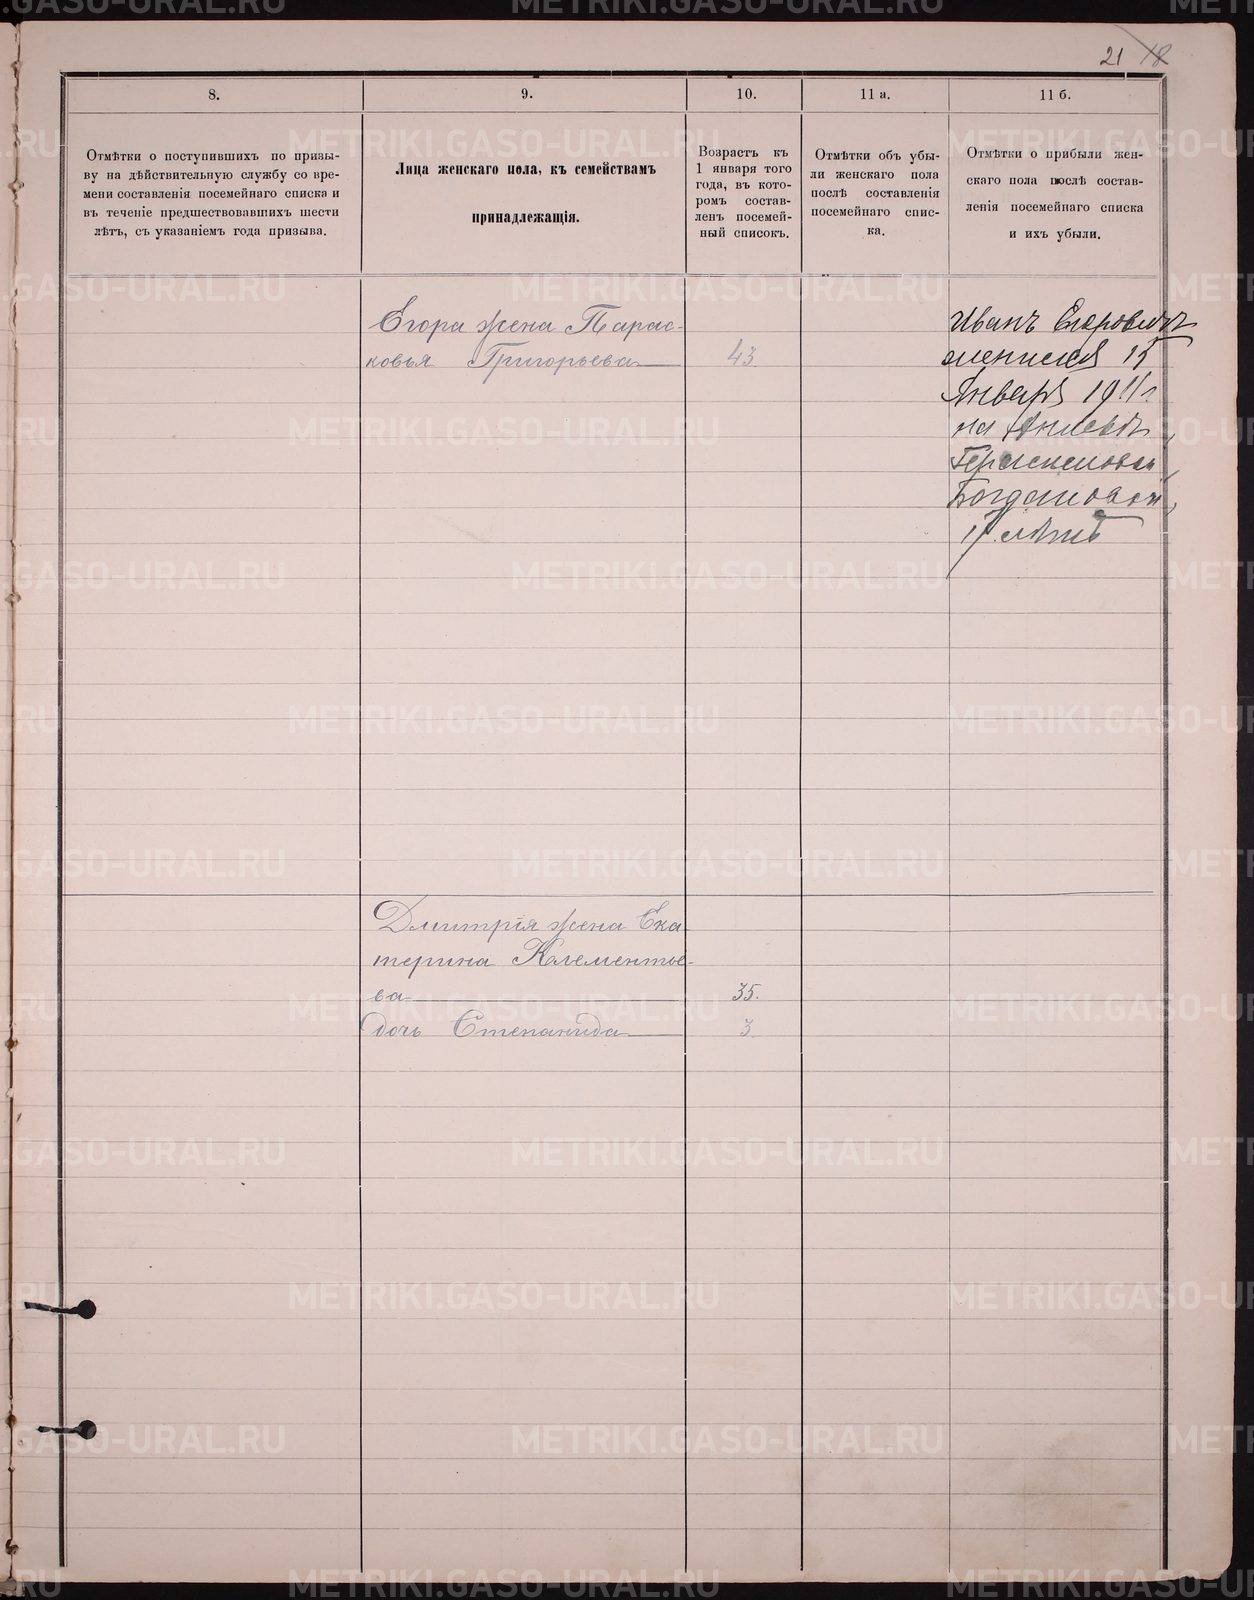 21 18
8.
9.
10.
11 а.
11 б.
Отмѣтки о поступившихъ по призы-
ву на дѣйствительную службу со вре-
мени составленія посемейнаго списка и
въ теченіе предшествовавшихъ шести
лѣтъ, съ указаніемъ года призыва.
Лица женскаго пола, къ семействамъ
принадлежащія.
Возрастъ къ
1 января того
года, въ кото-
ромъ состав-
ленъ посемей-
ный списокъ.
Отмѣтки объ убы-
ли женскаго пола
послѣ составленія
посемейнаго спис-
ка.
Отмѣтки о прибыли жен-
скаго пола послѣ состав-
ленія посемейнаго списка
и ихъ убыли.
Егора жена Парас-
ковья Григорьева 43
Иванъ Егоровичъ
женился 15
Января 1911 г
на
Богдановой,
17 лѣтъ
Дмитрія жена Ека-
терина Клементье-
ва 35.
дочь Степанида 3
METRIKI.GASO-URAL.RU